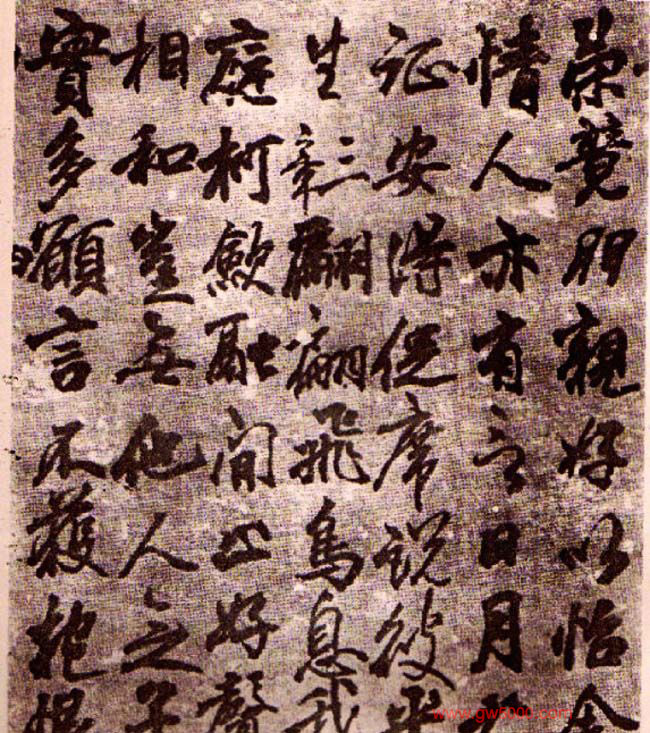 榮競朋親好以怡余
情人亦有言日月
征安得促席說彼平
生三章翩翩飛鳥息我
庭柯斂翮間止好聲
相和豈無他人之子
實多願言不獲抱恨